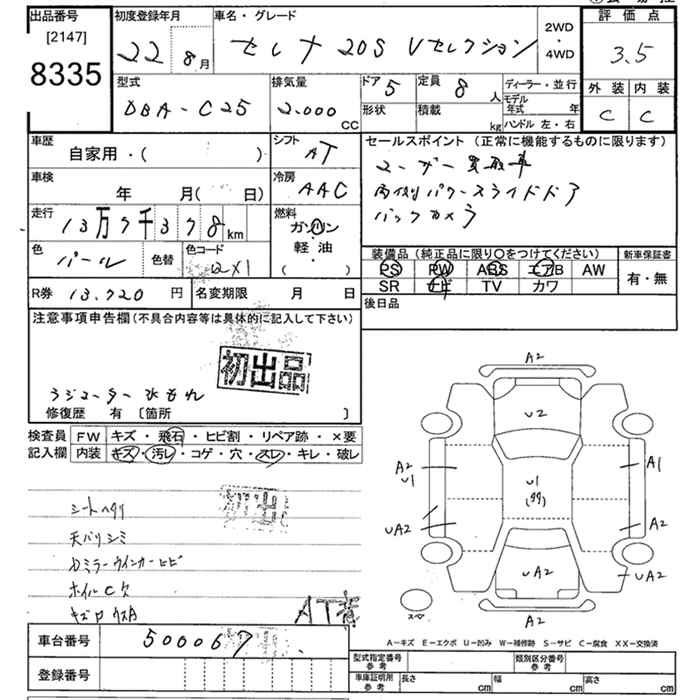 出品番号
[2147]
8335
初度登録年月
22 8月
車名・グレード
セレナ 20S Vセレクション
2WD
・
4WD
評価点
3.5
外装 内装
C C
型式
DBA-C25
排気量
2.000
CC
ドア
5
定員
8
人
形状
積載
kg
ディーラー・並行
モデル年式 年
ハンドル 左・右
車歴
自家用・( )
シフト
AT
セールスポイント(正常に機能するものに限ります)
ユーザー買取車
両側パワースライドドア
バックカメラ
車検
年 月( 日)
冷房
AAC
走行
13万7千378km
燃料
ガソリン
軽・油
( )
色
パール
色替
色コード
QX1
装備品(純正品に限り〇をつけてください)
PS PW ABS エアB AW
SR ナビ TV カワ
新車保証書
有・無
R券 13.720円
名変期限 月 日
後日品
注意事項申告欄(不具合内容等は具体的に記入して下さい)
初出品
ラジエーター水もれ
修復歴 有〔箇所 〕
検査員記入欄
FW キズ・飛石・ヒビ割・リペア跡・×要
内装 キズ・汚レ・コゲ・穴・スレ・キレ・破レ
初出
シートヘタリ
天バリシミ
Dミラーウインカーヒビ
ホイルC欠
キズ凹ウス凸
AT
A2
U2
A2
U1
U1
A1
UA2
A2
UA2
UA2
A2
スペ
A-キズ E-エクボ U-凹み W-補修跡 S-サビ C-腐食 XX-交換済
車台番号 500067
登録番号
型式指定番号
参考
類別区分番号
参考
車庫証明用
参考
長さ cm
幅 cm
高さ cm